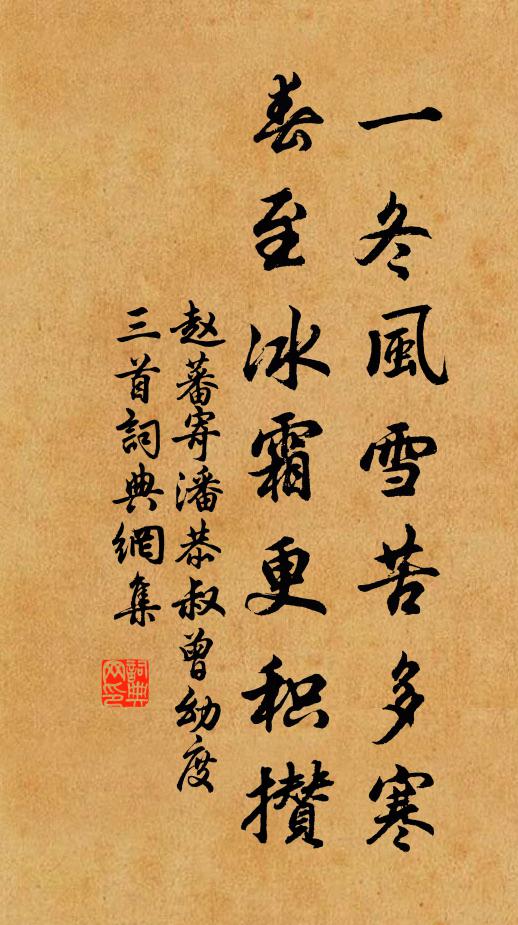 一冬風雪苦多寒
春至冰霜更积攒
赵蕃寄潘恭叔曾幼度
三首詞典網集
詞典網印